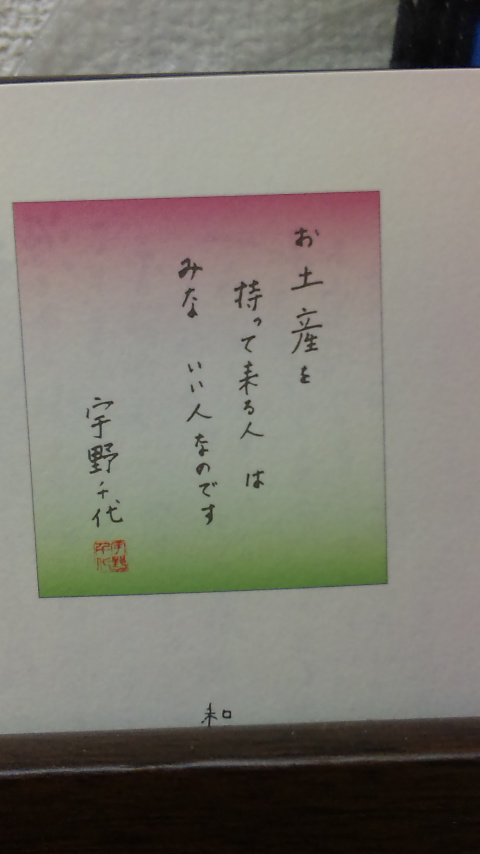 お土産を
持って来る人は
みな いい人なのです
宇野千代
宇野千代
和